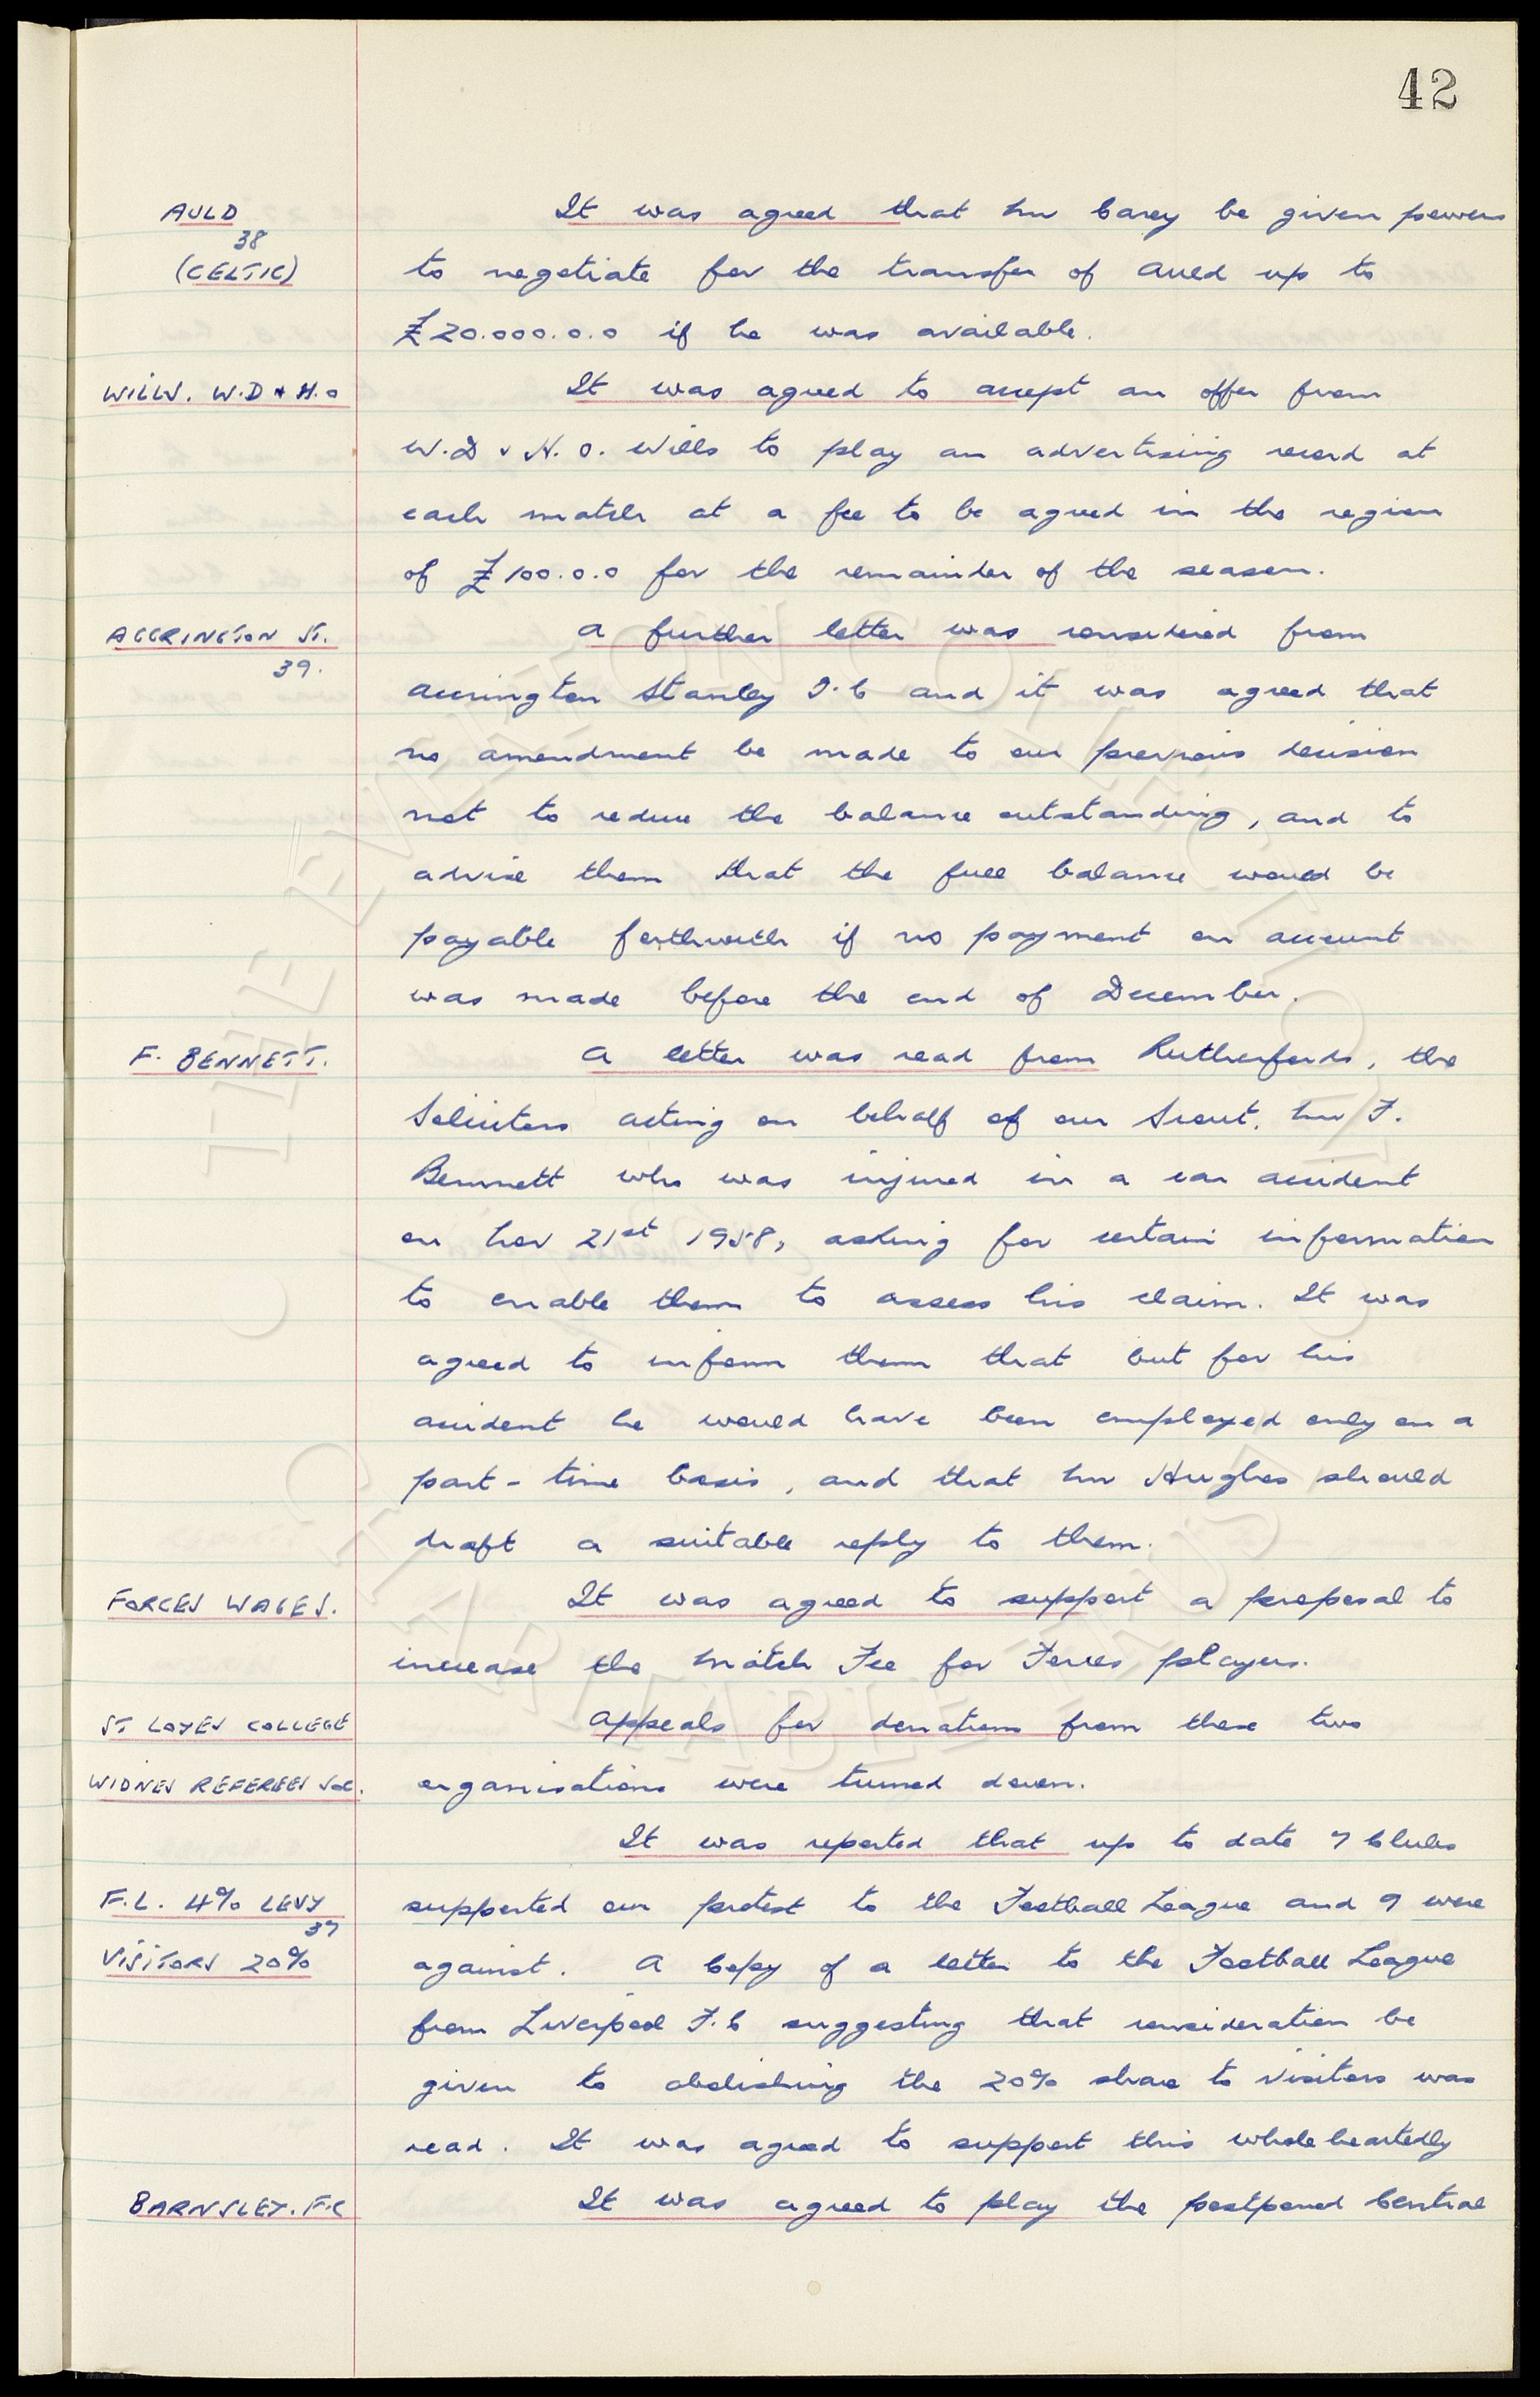 42
AULD
It was agreed that Mr Carey be given powers
38
(CELTIC)
to negotiate for the transfer of Auld up to
£20.000.0.0 if he was available.
WILLS. W.D & H.O
It was agreed to accept an offer from
W.D & H.O. Wills to play an advertising record at
each match at a fee to be agreed in the region
of £100.0.0 for the remainder of the season.
ACCRINGTON ST.
39.
A further letter was considered from
Accrington Stanley F.C and it was agreed that
no amendment be made to our previous decision
not to reduce the balance outstanding, and to
advise them that the full balance would be
payable forthwith if no payment on account
was made before the end of December.
F. BENNETT.
A letter was read from Rutherfords, the
Solicitors acting on behalf of our Scout, Mr F.
Bennett who was injured in a car accident
on Nov 21st 1958, asking for certain information
to enable them to assess his claim. It was
agreed to inform them that but for his
accident he would have been employed only on a
part-time basis, and that Mr Hughes should
draft a suitable reply to them.
FORCES WAGES.
It was agreed to support a proposal to
increase the Match Fee for Forces players.
ST LOYES COLLEGE
Appeals for donations from these two
WIDNES REFEREES SOC.
organisations were turned down.
It was reported that up to date 7 Clubs
F.L. 4% LEVY
supported our protest to the Football League and 9 were
37
VISITORS 20%
against. A Copy of a letter to the Football League
from Liverpool F.C suggesting that consideration be
given to abolishing the 20% share to visitors was
read. It was agreed to support this wholeheartedly
BARNSLEY. F.C
It was agreed to play the postponed Central
THE EVERTON COLLECTION
CHARITABLE TRUST